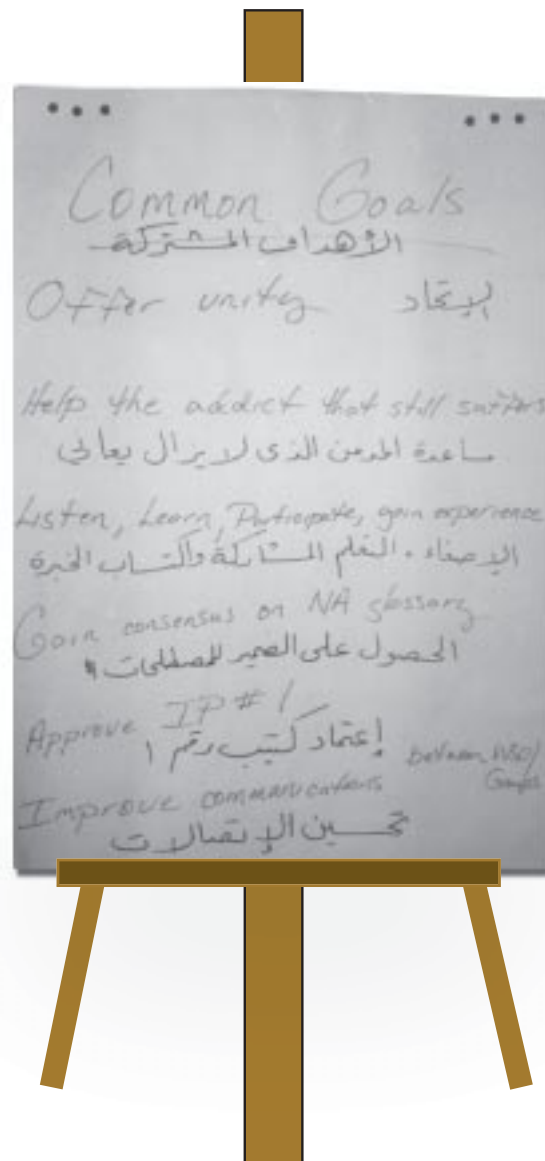 Common Goals
الأهداف المشتركة
Offer unity الإتحاد
Help the addict that still suffers
مساعدة المدمن الذى لا يزال يعاني
Listen, Learn, Participate, gain experience
الإصغاء . التعلم المشاركة واكتساب الخبرة
Gain consensus on NA glossary
الحصول على للمصطلحات
Approve IP#1
إعتماد كتيب رقم ١
between NSO/
Groups
Improve communications
تحسين الإتصالات